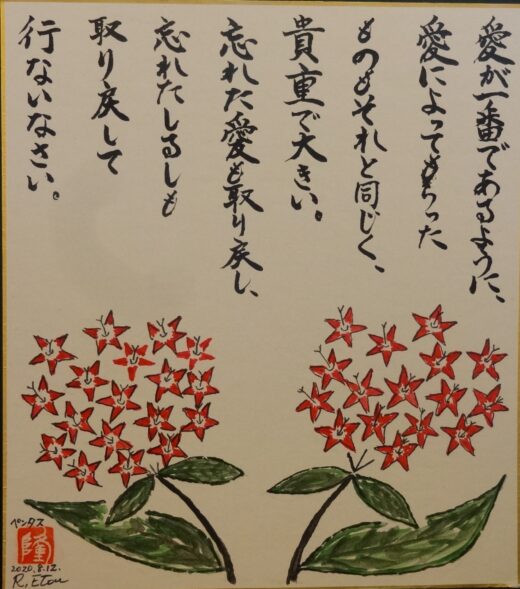 愛が一番であるように、
愛によってもらった
ものもそれと同じく、
貴重で大きい。
忘れた愛も取り戻し、
忘れたしるしも
取り戻して
行ないなさい。
ペンタス
隆
2020.8.12.
R.Etou